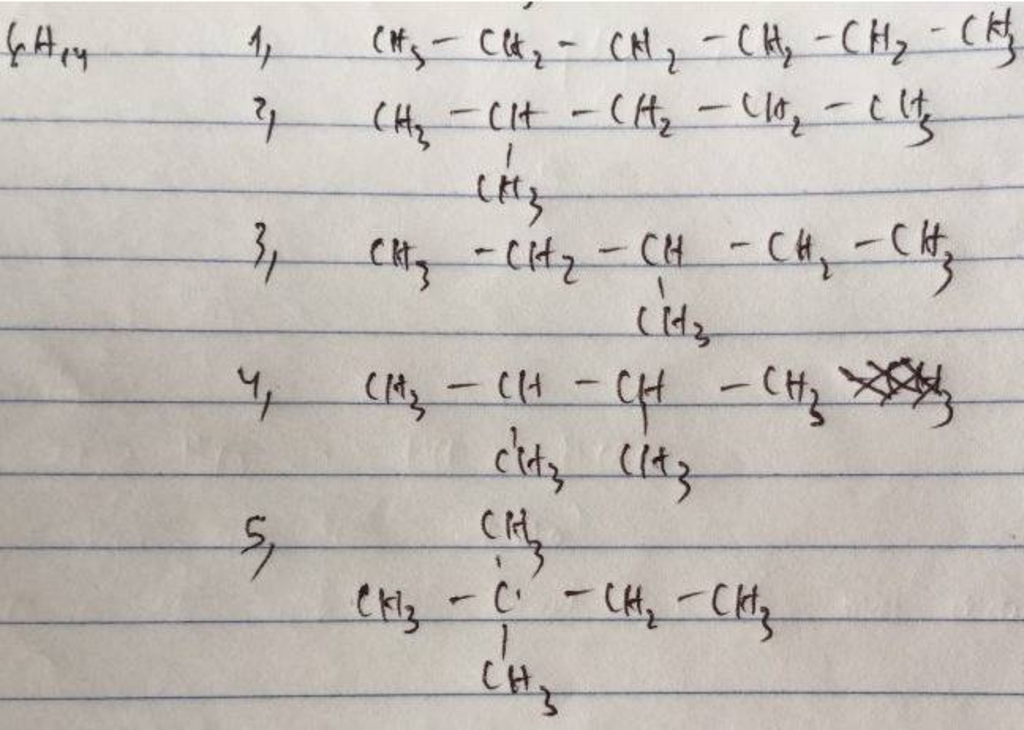 C₆H₁₄ 1, CH₃ - CH₂ - CH₂ - CH₂ - CH₂ - CH₃
2, CH₃ - CH - CH₂ - CH₂ - CH₃
|
CH₃
3, CH₃ - CH₂ - CH - CH₂ - CH₃
|
CH₃
4, CH₃ - CH - CH - CH₃
| |
CH₃ CH₃
5, CH₃
|
CH₃ - C - CH₂ - CH₃
|
CH₃